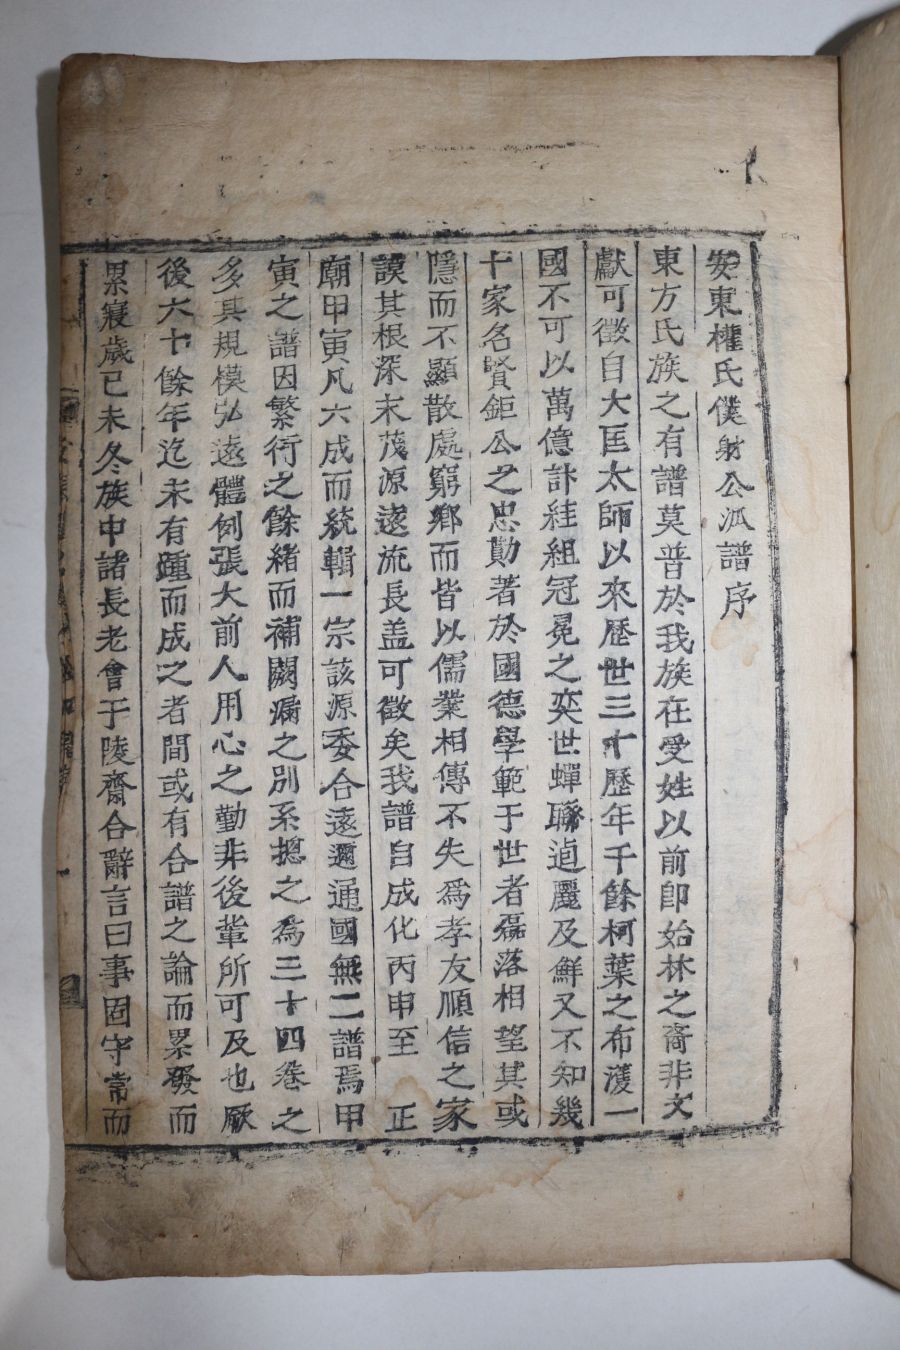 安東權氏僕射公派譜序
東方氏族之有譜莫普於我族在受姓以前卽始林之裔非文
獻可徵自大匡太師以來歷世三十歷年千餘柯葉之布濩一
國不可以萬億計絓組冠冕之奕世蟬聯遒麗及鮮又不知幾
十家名賢鉅公之忠勳著於國德學範于世者磊落相望其或
隱而不顯散處窮鄕而皆以儒業相傳不失爲孝友順信之家
謨其根深末茂源遠流長盖可徵矣我譜自成化丙申至 正
廟甲寅凡六成而統輯一宗該源委合遠邇通國無二譜焉甲
寅之譜因繁衍之餘緖而補闕漏之別系摠之為三十四巻之
多其規模弘遠體例張大前人用心之勤非後輩所可及也厥
後六十餘年迄未有踵而成之者間或有合譜之論而累發而
累寢歲己未冬族中諸長老會于陵齋合辭言曰事固守常而